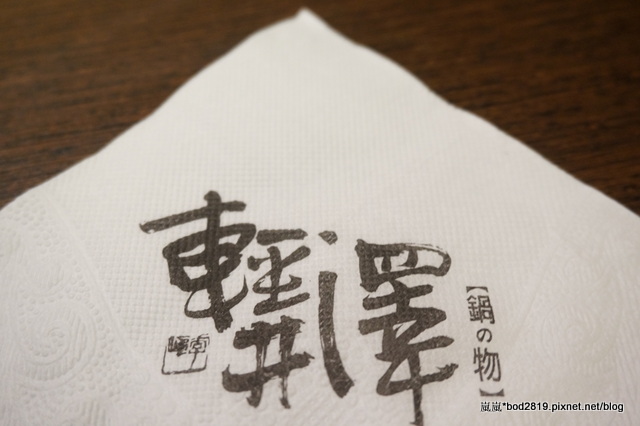 輕井澤
【鍋の物】
嵐嵐*bod2819.pixnet.net/blog